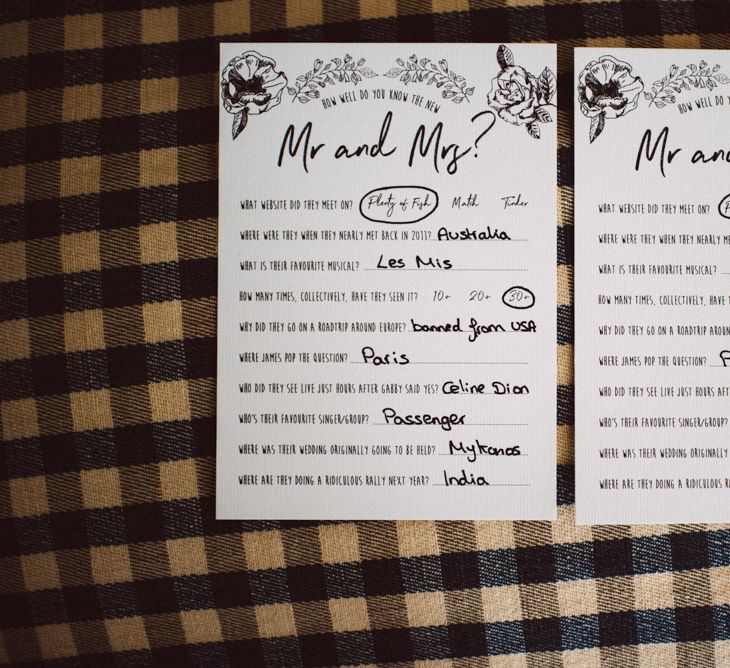 HOW WELL DO YOU KNOW THE NEW
Mr and Mrs?
WHAT WEBSITE DID THEY MEET ON? Plenty of Fish Match Tinder
WHERE WERE THEY WHEN THEY NEARLY MET BACK IN 2011? Australia
WHAT IS THEIR FAVOURITE MUSICAL? Les Mis
HOW MANY TIMES, COLLECTIVELY, HAVE THEY SEEN IT? 10+ 20+ 30+
WHY DID THEY GO ON A ROADTRIP AROUND EUROPE? banned from USA
WHERE JAMES POP THE QUESTION? Paris
WHO DID THEY SEE LIVE JUST HOURS AFTER GABBY SAID YES? Celine Dion
WHO'S THEIR FAVOURITE SINGER/GROUP? Passenger
WHERE WAS THEIR WEDDING ORIGINALLY GOING TO BE HELD? Mykonos
WHERE ARE THEY DOING A RIDICULOUS RALLY NEXT YEAR? India
HOW WELL DO
Mr and
WHAT WEBSITE DID THEY MEET ON?
WHERE WERE THEY WHEN THEY NEARLY
WHAT IS THEIR FAVOURITE MUSICAL?
HOW MANY TIMES, COLLECTIVELY, HAVE
WHY DID THEY GO ON A ROADTRIP
WHERE JAMES POP THE QUESTION?
WHO DID THEY SEE LIVE JUST HOURS
WHO'S THEIR FAVOURITE SINGER/GROUP?
WHERE WAS THEIR WEDDING ORIGINALLY
WHERE ARE THEY DOING A RIDICULOUS